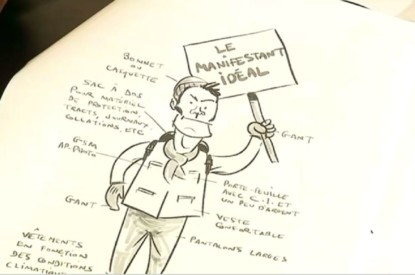 LE
MANIFESTANT
IDÉAL
BONNET
OU
CASQUETTE
SAC À DOS
POUR MATÉRIEL
DE PROTECTION,
TRACTS, JOURNAUX,
COLLATIONS, ETC
GSM
AP. PHOTO
GANT
GANT
PORTE-FEUILLE
AVEC C.I. ET
UN PEU D'ARGENT
VESTE
CONFORTABLE
PANTALONS LARGES
VÊTEMENTS
EN FONCTION
DES CONDITIONS
CLIMATIQUES